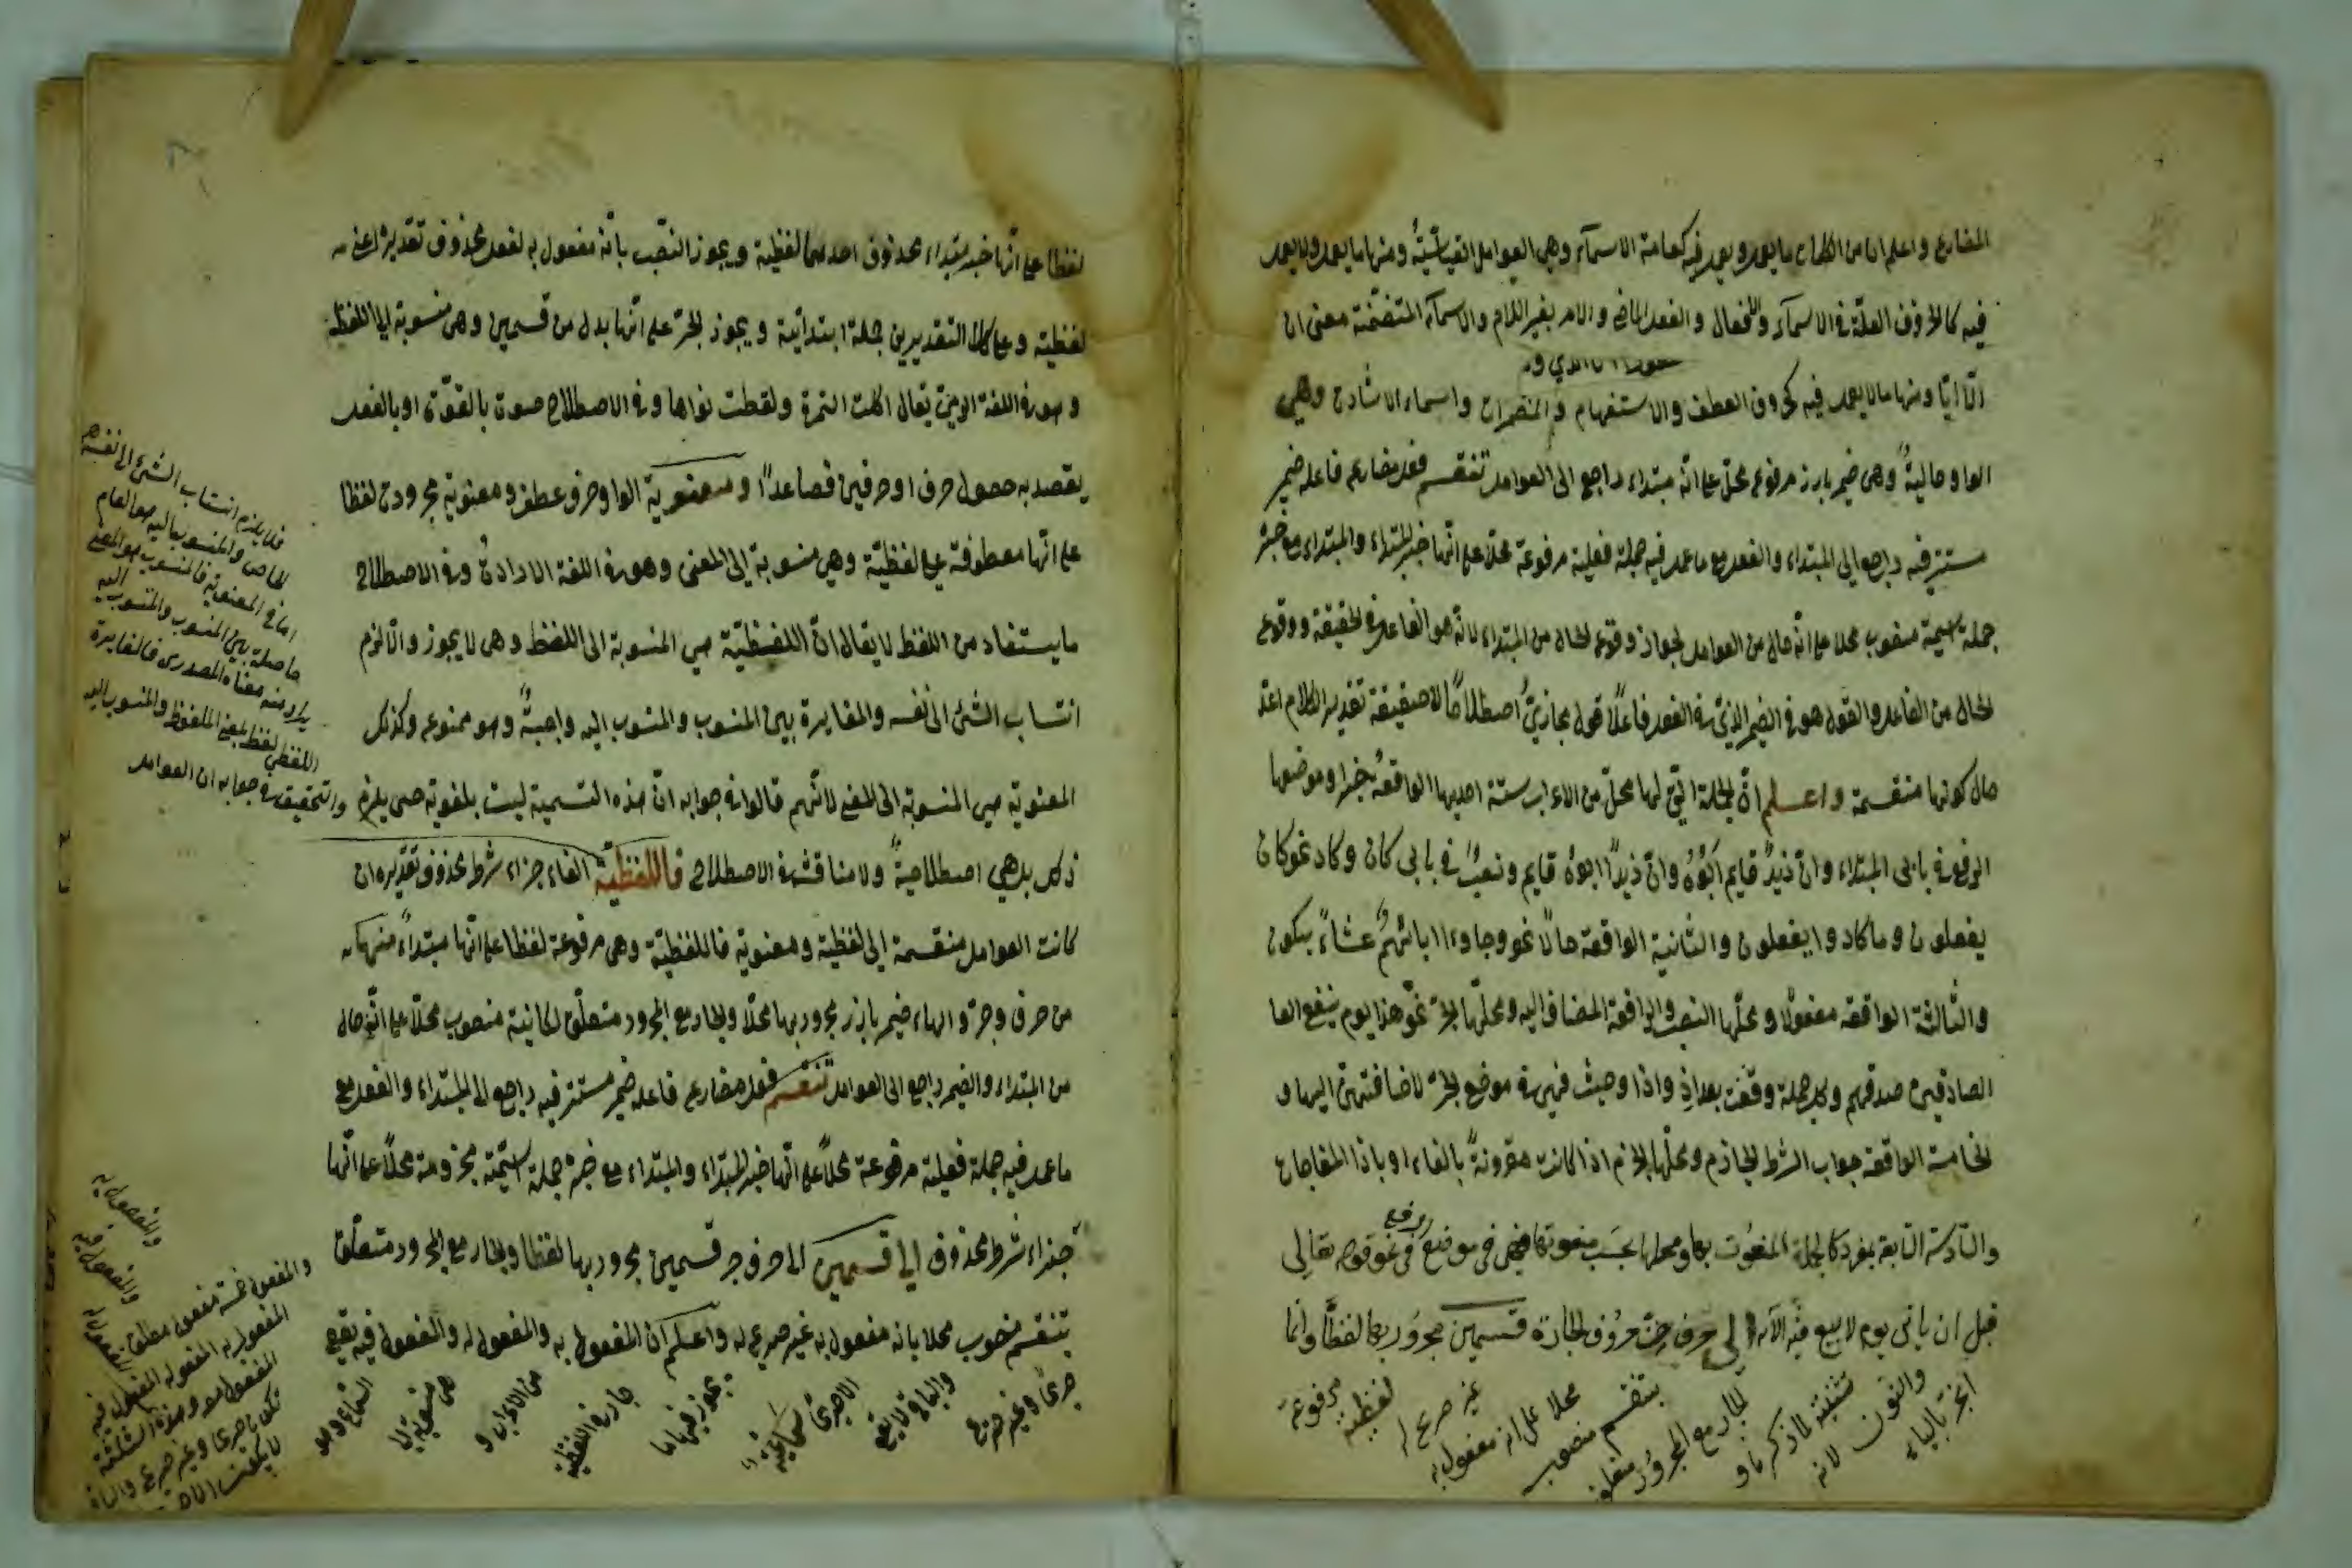 المضارع واعلم ان من الكلمات ما يعمل ويعمل فيه كعامة الاسمآء وهي العوامل القياسيّة ومنها ما يعمل ولا يعمل
فيه كالحروف العاملة في الاسمآء والافعال والفعل الماضي والامر بغير اللام والاسمآء المتضمّنة معنى ان
الّا ايّا ومنها ما لا يعمل فيه كحروف العطف والاستفهام والمضمرات واسماء الاشارات وهي
الواو حاليةٌ وهي ضمير بارز مرفوع محلّ على انّه مبتداء راجع الى العوامل تنقسم فعل مضارع فاعله ضمير
مستتر فيه راجع الى المبتداء والفعل مع ما عمل فيه جملة فعلية مرفوعة محلا على انّها خبر المبتداء والمبتداء مع خبره
جملة اسمية منصوب محلا على انّه حال من العوامل لجواز وقوع الحال من المبتداء لانّه هو الفاعل في الحقيقة ووقوع
الحال من الفاعل والقول هو في الضمير الذي في الفعل فاعلًا قول مجازيّ اصطلاحًا لا حقيقة تقدير الكلام
حال كونها منقسمة واعلم انّ الجملة التي لها محلّ من الاعراب ستة احديها الواقعة خبرا وموضعها
الرفع في بابى المبتداء وانّ زيدٌ قايم ابوه وانّ زيدًا ابوه قايم ونصبٌ في بابى كان وكاد نحو كان
يفعلون وما كادوا يفعلون والثانية الواقعة حالًا نحو وجاءوا اباهم عشاءً يبكون
والثالثة الواقعة مفعولا ومحلّها النصب والرابعة المضاف اليه ومحلّها الجرّ نحو هذا يوم ينفع
الصادقين صدقهم وكل جملة وقعت بعد اذ واذا وحيث فهي في موضع الجرّ لاضافتهنّ اليها و
الخامسة الواقعة جواب الشرط الجازم ومحلّها الجزم اذا كانت مقرونةً بالفاء او باذا المفاجات
والسادسة التابعة لمفرد كالجملة المنعوت بها ومحلها بحسب منعوتها فهي في موضع رفع في نحو قوله تعالى
قبل ان ياتى يوم لا بيع فيه الآية الى حرف من حروف الجارة قسمين مجرور بها لفظًا وانّما
انجرّ بالياء
والنون لانه
تثنية لما ذكرنا و
الجار مع المجرور متعلق
بتنقسم منصوب
محلا على انه مفعول به
غير صريح له
لفظية مرفوعة
لفظا على انّها خبر مبتداء محذوف احدهما لفظية ويجوز النصب بانه مفعول به لفعل محذوف تقديره اعني
لفظية وعلى كلا التقديرين جملة ابتدائية ويجوز الجرّ على انّها بدل من قسمين وهي منسوبة الى اللفظ
وهو في اللغة الرمي يقال اكلت التمرة ولفظت نواها وفي الاصطلاح صوت بالقوّة او بالفعل
يقصد به حصول حرف او حرفين فصاعدًا ومعنوية الواو حرف عطف ومعنوية مجرورة لفظا
على انّها معطوفة على لفظيّة وهي منسوبة الى المعنى وهو في اللغة الارادة وفي الاصطلاح
ما يستفاد من اللفظ لا يقال انّ اللفظيّة هي المنسوبة الى اللفظ وهي لا يجوز والّا لزم
انتساب الشئ الى نفسه والمغايرة بين المنسوب والمنسوب اليه واجبةٌ وهو ممنوع وكذلك
المعنوية هي المنسوبة الى المعنى لانّهم قالوا في جوابه انّ هذه التسمية ليست بلغوية حتى يلزم
ذلك بل هي اصطلاحيةٌ ولا مناقشة في الاصطلاح فاللفظيّة الفاء جزاء شرط محذوف تقديره ان
كانت العوامل منقسمة الى لفظية ومعنوية فاللفظيّة وهي مرفوعة لفظا على انّها مبتداءٌ منها
من حرف وجرّ والهاء ضمير بارز مجرور بها محلّا والجار مع المجرور متعلّق لكائنة منصوب محلّا على انّه حال
من المبتداء والضمير راجع الى العوامل تنقسم فعل مضارع فاعله ضمير مستتر فيه راجع الى المبتداء والفعل مع
ما عمل فيه جملة فعلية مرفوعة محلًا على انّها خبر المبتداء والمبتداء مع خبره جملة اسميّة مجزومة محلًا على انّها
جزاء شرط محذوف الى قسمين الى حرف جر قسمين مجرور بها لفظا والجار مع المجرور متعلّق
بتنقسم منصوب محلا بانه مفعول به غير صريح له واعلم ان المفعول به والمفعول له والمفعول فيه يقع
صريحًا وغير صريح
والباقى لا يقع
الا صريحًا سماعيّة
يجوز فيها ما
جاز في اللفظية
من الاعراب و
هي منسوبة الى
السماع وهو
فلا يلزم انتساب الشئ الى نفسه
الخاص والمنسوب اليه هو العام
اما في المعنوية فالمنسوب هو المعنى
حاصلة بين المنسوب والمنسوب اليه
يراد منه معناه المصدرى فالمغايرة
اللفظى لفظ بمعنى الملفوظ والمنسوب اليه
والتحقيق في جوابه ان العوامل
والمفعول به
والمفعول فيه
والمفعول له
والمفعول خمسة مفعول مطلق
المفعول به المفعول له المفعول فيه
المفعول معه وهذه الثلثة
تكون صريحا وغير صريح